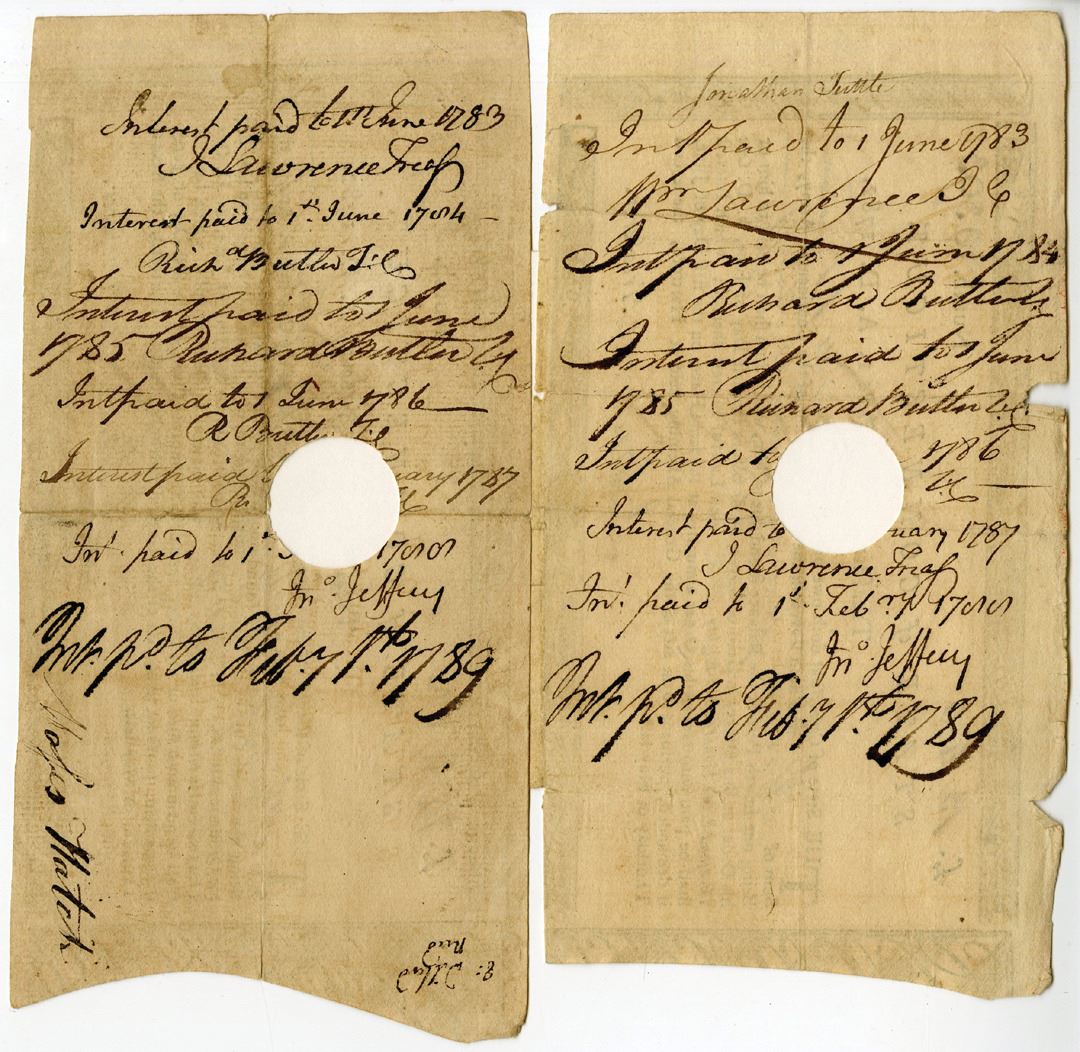 Interest paid to 1st June 1783
J Lawrence Treas
Interest paid to 1st June 1784 -
Richd Butler T:C
Interest paid to 1 June
1785 Richard Butler
Intt paid to 1 June 1786
R Butler T:C
Interest paid uary 1787
Int. paid to 1st 1788
Jno Jeffery
Int. pd. to Feby 1st. 1789
Moses Hatch
Jonathan Tuttle
Int paid to 1 June 1783
Wm Lawrence T C
Int paid to 1 June 1784
Richard Butler
Interest paid to 1 June
1785 Richard Butler
Intt paid to 1786
Interest paid to uary 1787
J Lawrence Treas
Int. paid to 1st Febry 1788
Jno Jeffery
Int. pd. to Feby 1st. 1789